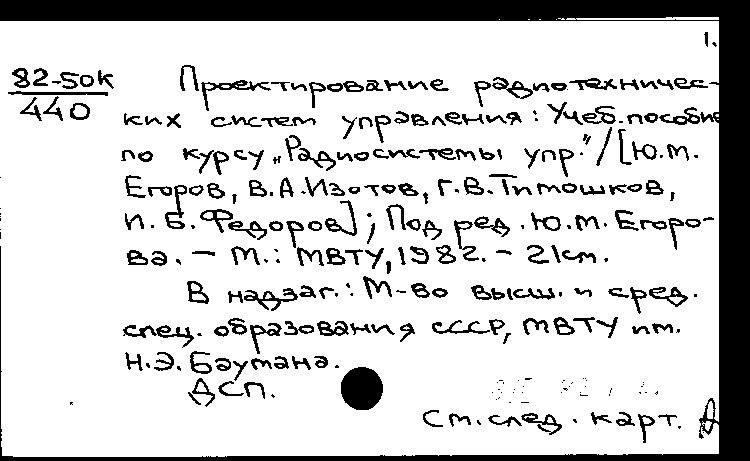 1.
82-50К
440
Проектирование радиотехничес-
ких систем управления: Учеб.пособие
по курсу „Радиосистемы упр."/[Ю.М.
Егоров, В.А.Изотов, Г.В.Тимошков,
И.Б.Федоров]; Под ред.Ю.М.Егоро-
ва. - М.: МВТУ, 1982. - 21см.
В надзаг.: М-во высш. и сред.
спец. образования СССР, МВТУ им.
Н.Э.Баумана.
ДСП.
См.след. карт.